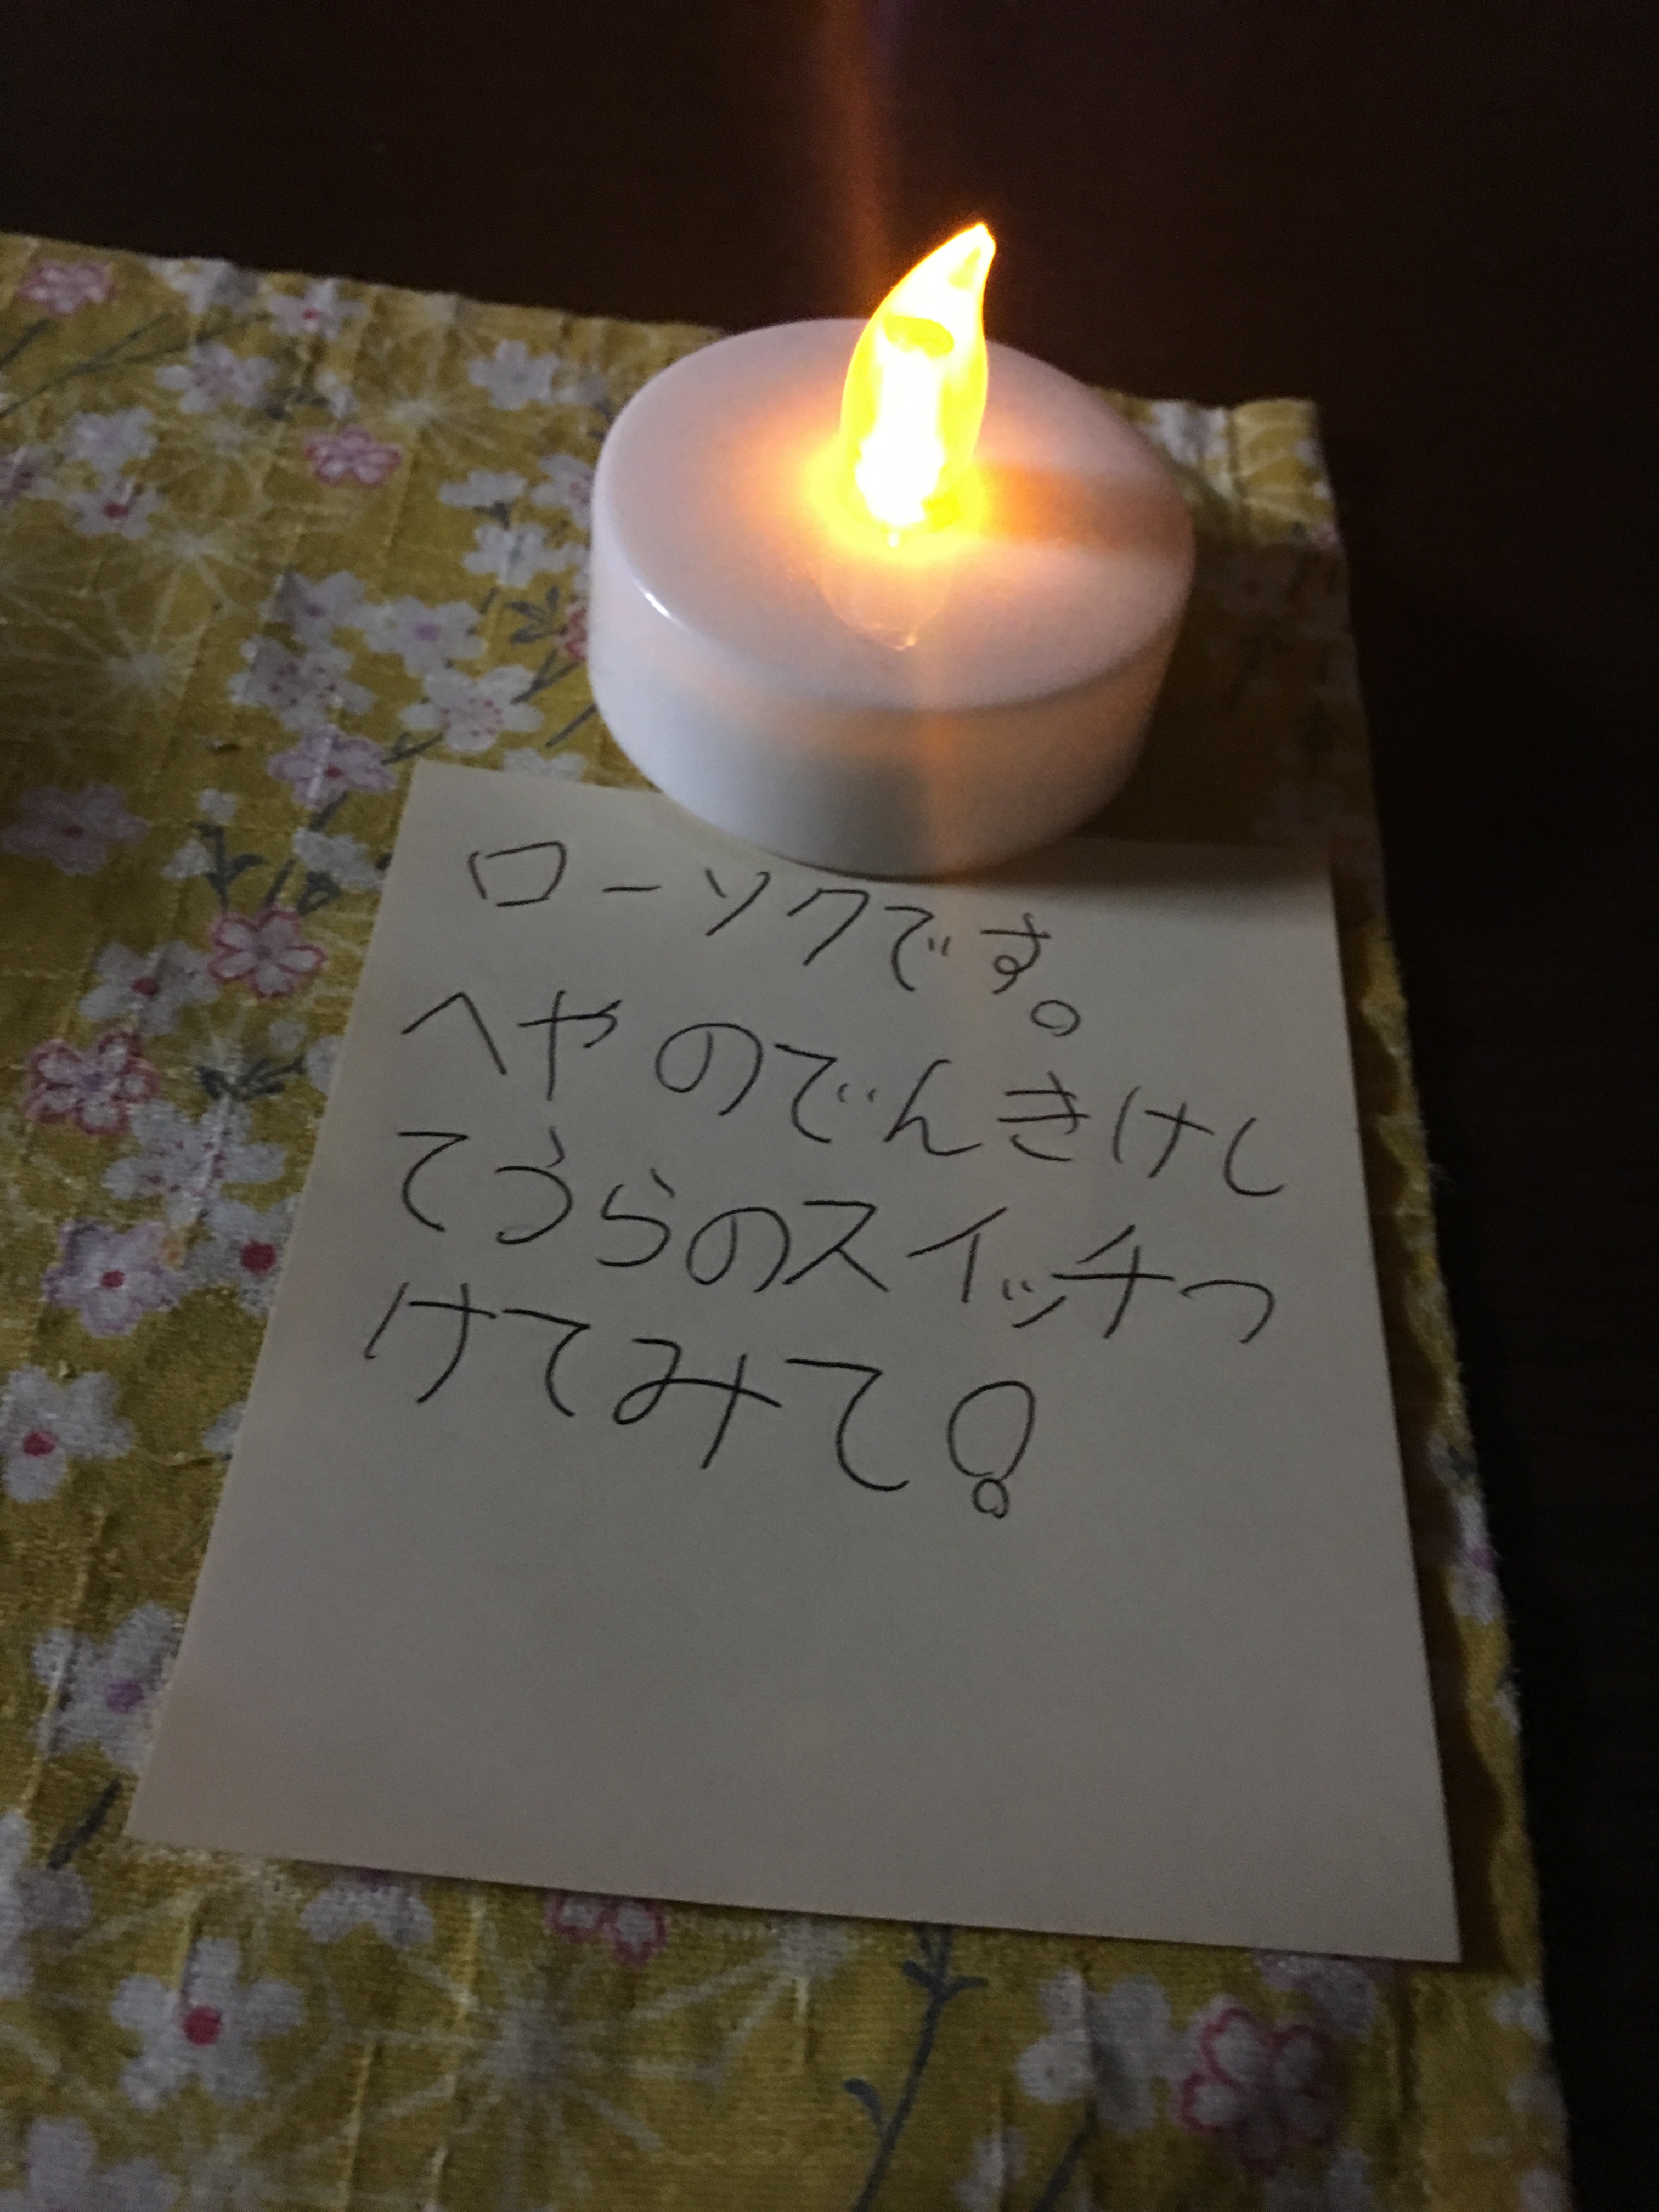 ローソクです。
へやのでんきけし
てうらのスイッチつ
けてみて!